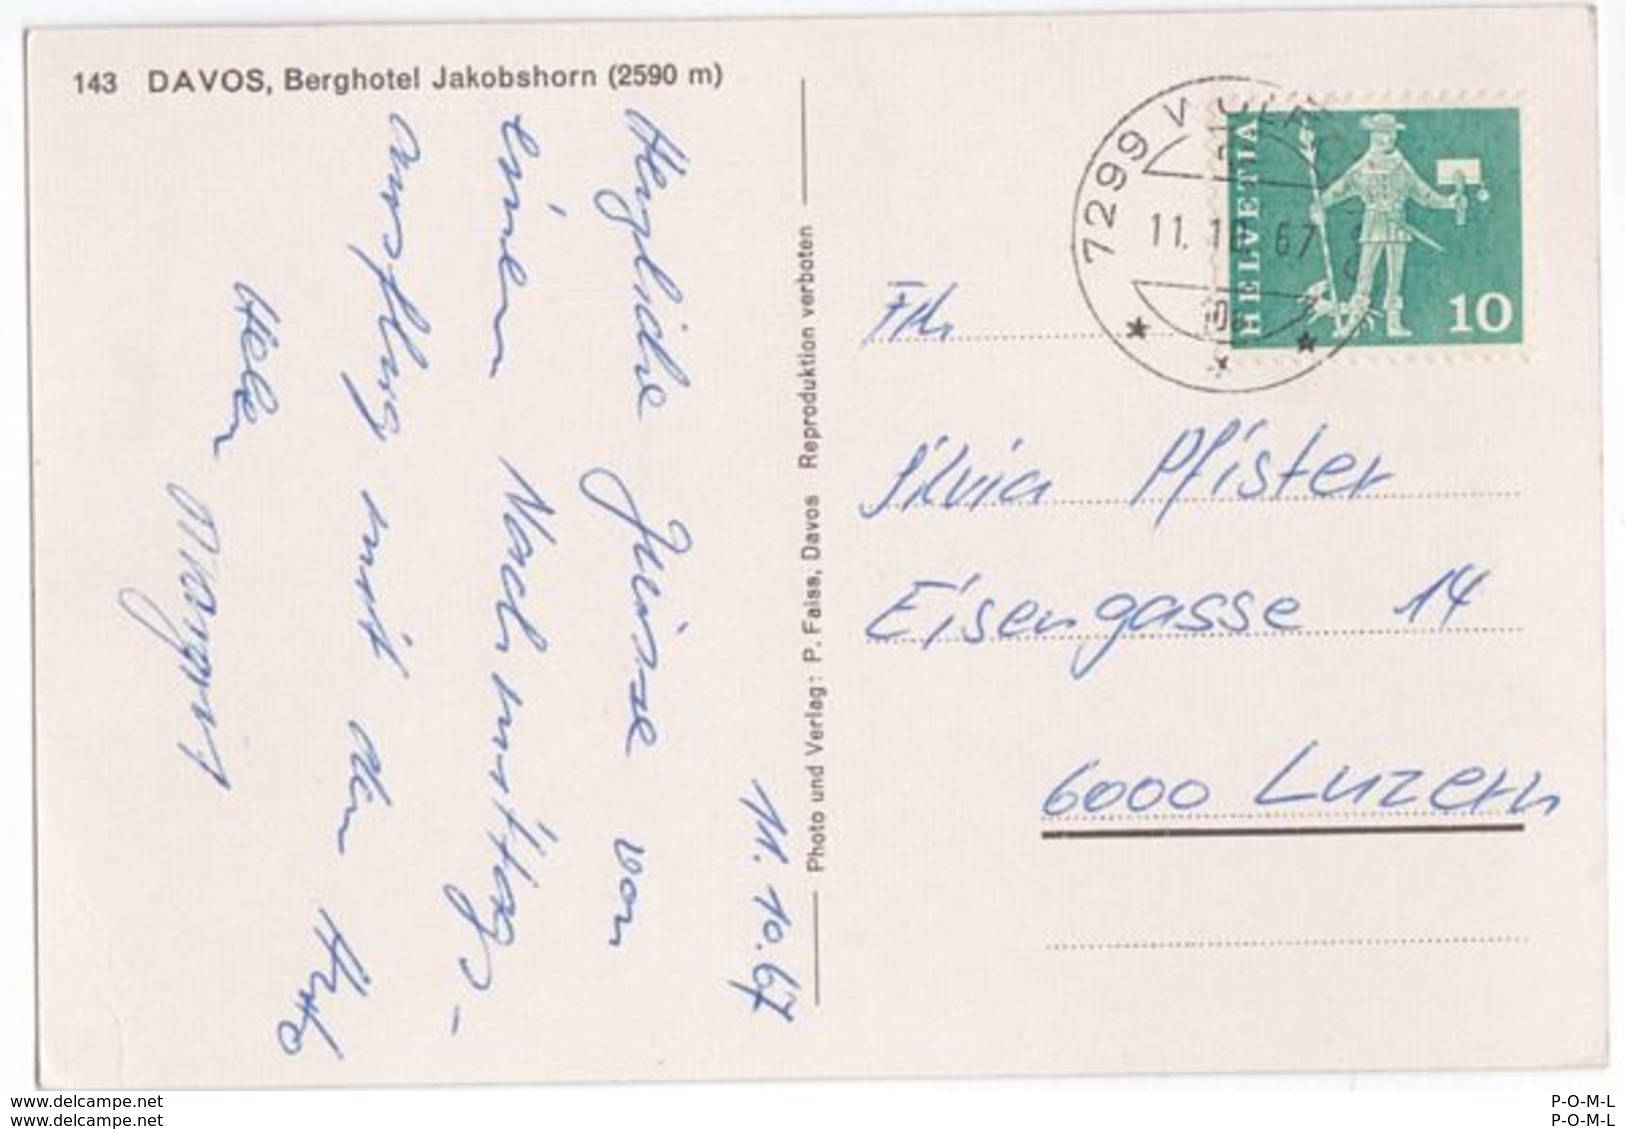 143 DAVOS, Berghotel Jakobshorn (2590 m)
11. 10. 67
Herzliche Grüsse von
einem Nachmittag-
ausflug mit dem Auto
Helen
Margrit
Photo und Verlag: P. Faiss, Davos Reproduktion verboten
7299
11. 10. 67
HELVETIA
10
Silvia Pfister
Eisengasse 14
6000 Luzern
www.delcampe.net P-O-M-L
www.delcampe.net P-O-M-L